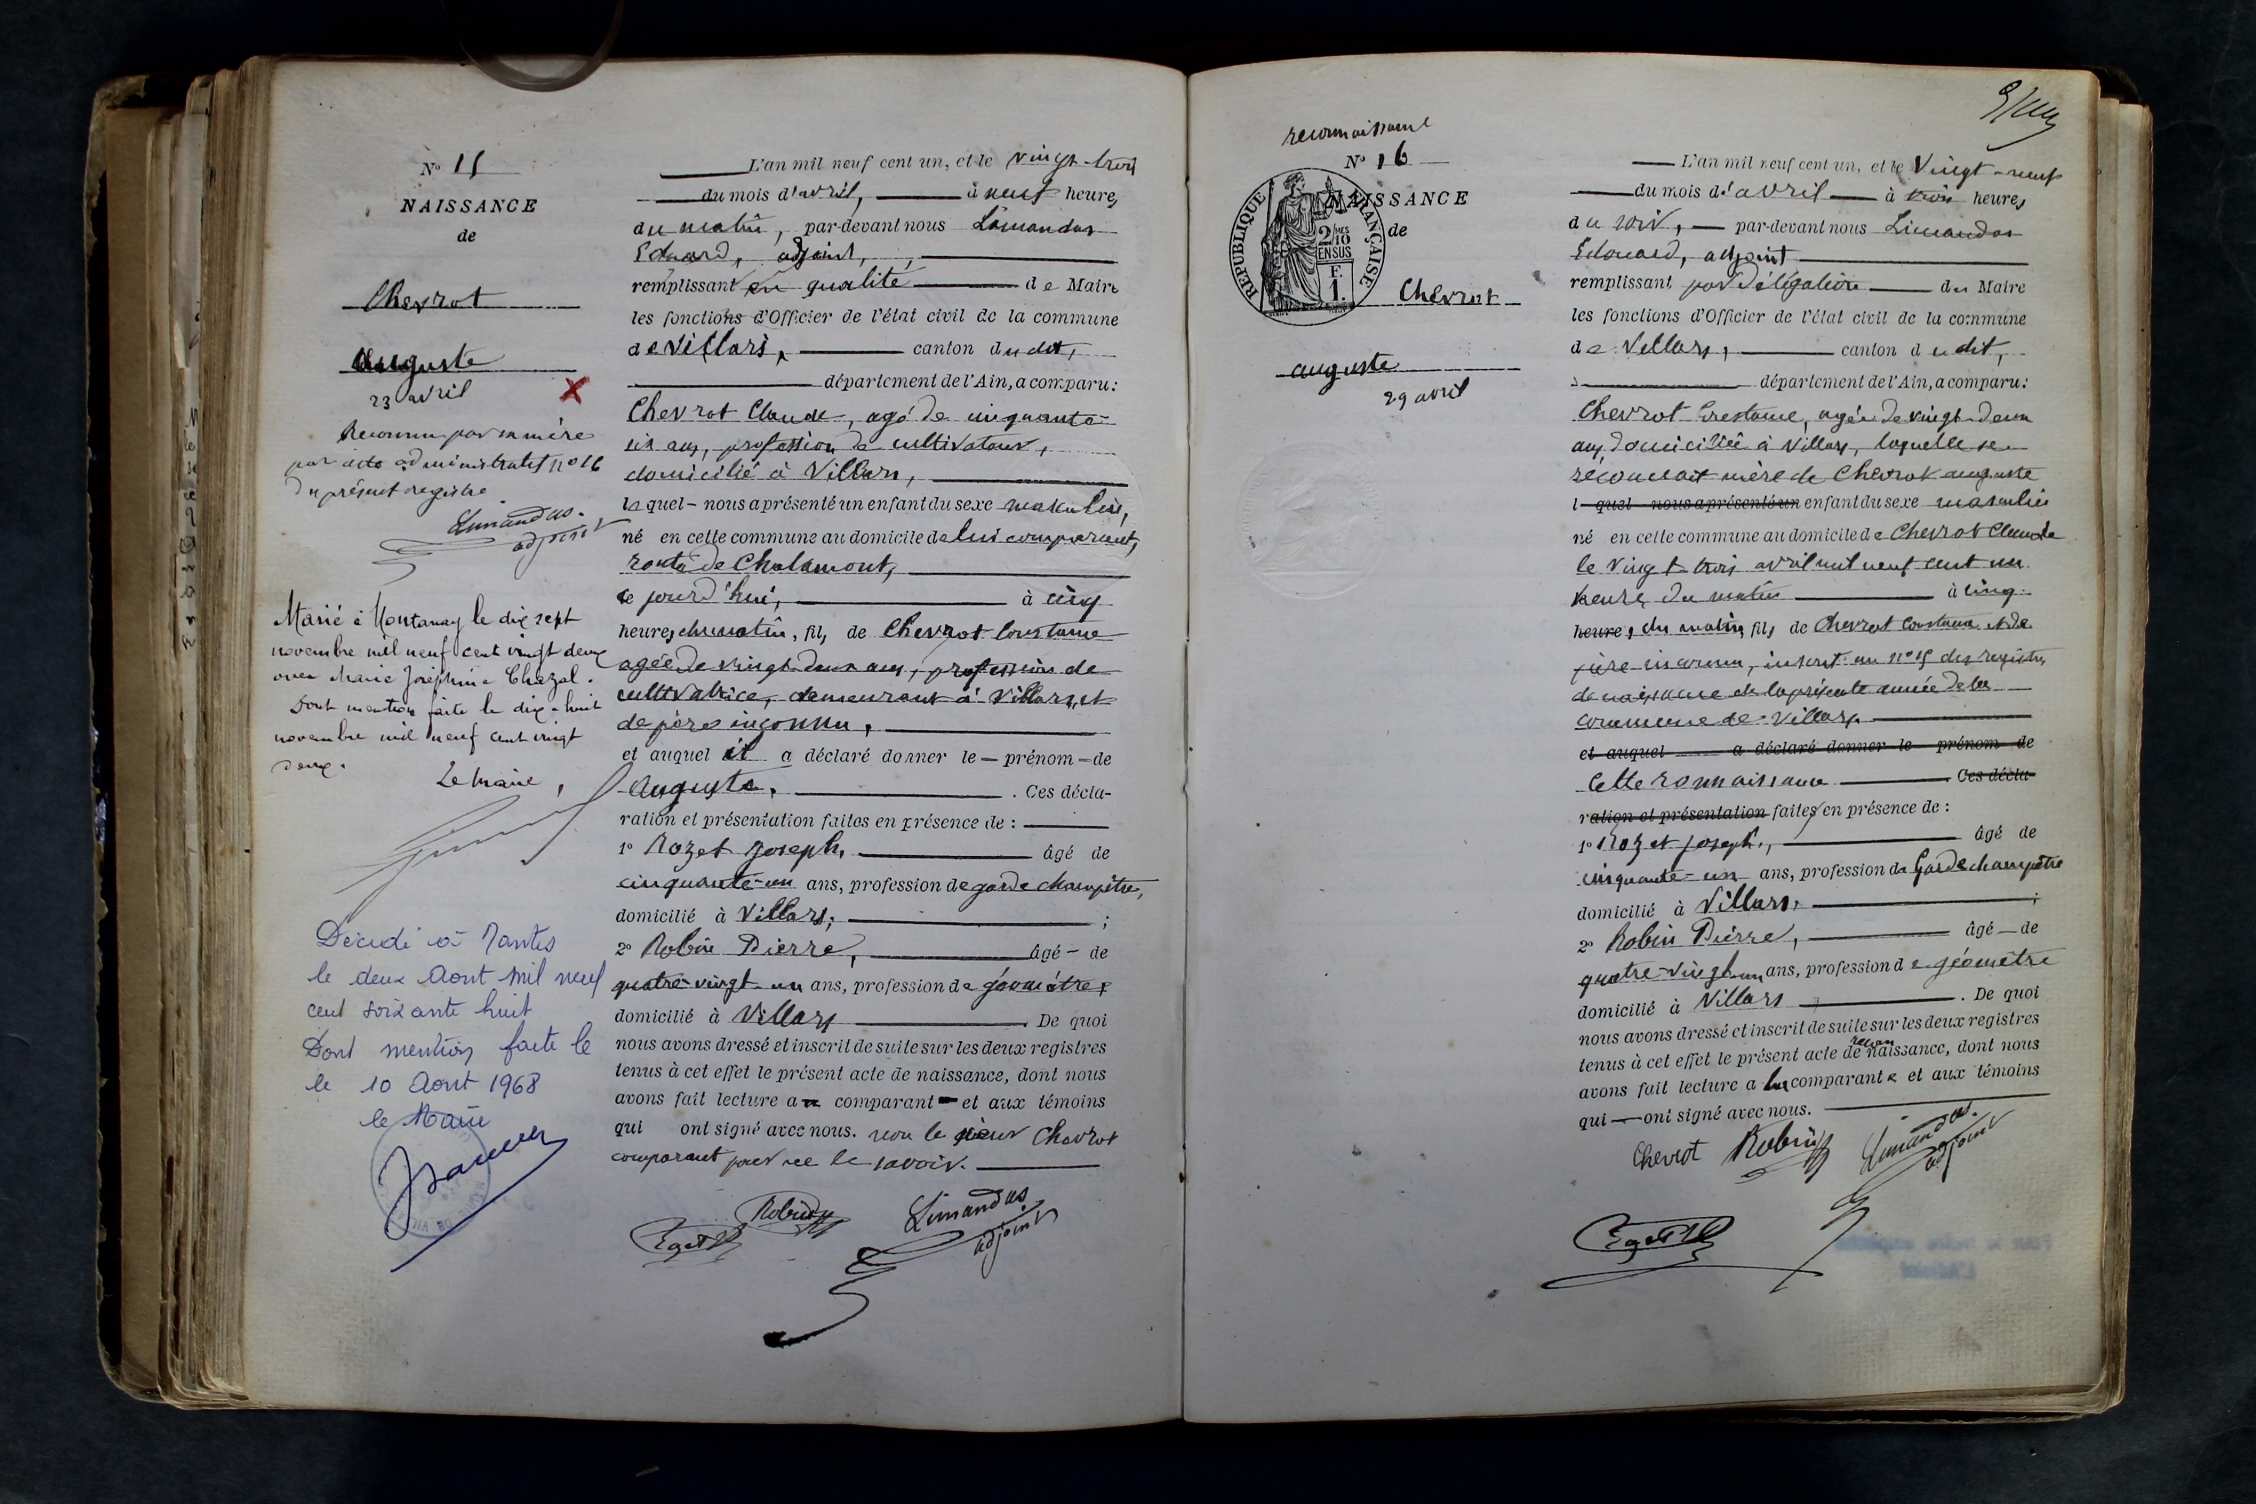 N° 15
NAISSANCE
de
Chevrot
Auguste
23 avril
Reconnu par sa mère
par acte administratif n° 16
du présent registre
Limandas.
adjoint
Marié à Montanay le dix sept
novembre mil neuf cent vingt deux
avec Marie Joséphine Chazal.
Dont mention faite le dix-huit
novembre mil neuf cent vingt
deux.
Le Maire,
Décédé à Nantes
le deux Aout mil neuf
cent soixante huit
Dont mention faite le
le 10 Aout 1968
le Maire
L'an mil neuf cent un, et le vingt-trois
du mois d'avril, à neuf heures
du matin, par-devant nous Limandas
Eduard, adjoint,
remplissant en qualité de Maire
les fonctions d'Officier de l'état civil de la commune
de Villars, canton dudit,
département de l'Ain, a comparu:
Chevrot Claude, agé de cinquante-
six ans, profession de cultivateur,
domicilié à Villars,
lequel nous a présenté un enfant du sexe masculin,
né en cette commune au domicile de lui comparant,
route de Chalamont,
ce jourd'hui, à cinq
heures du matin, fils de Chevrot Constance
agée de vingt-deux ans, profession de
cultivatrice, demeurant à Villars, et
de père inconnu,
et auquel il a déclaré donner le prénom de
Auguste. Ces décla-
ration et présentation faites en présence de :
1° Rozet Joseph, âgé de
cinquante-un ans, profession de garde champêtre,
domicilié à Villars, ;
2° Robin Pierre, âgé de
quatre-vingt-un ans, profession de géomètre,
domicilié à Villars. De quoi
nous avons dressé et inscrit de suite sur les deux registres
tenus à cet effet le présent acte de naissance, dont nous
avons fait lecture au comparant et aux témoins
qui ont signé avec nous. non le sieur Chevrot
comparant pour ne le savoir.
Robin
Rozet
Limandas
adjoint
reconnaissance
N° 16
NAISSANCE
de
RÉPUBLIQUE FRANÇAISE
2/10 MES
EN SUS
F.
1.
Chevrot
auguste
29 avril
L'an mil neuf cent un, et le Vingt-neuf
du mois d'avril à trois heures
du soir, par-devant nous Limandas
Edouard, adjoint
remplissant par délégation du Maire
les fonctions d'Officier de l'état civil de la commune
de Villars, canton dudit,
département de l'Ain, a comparu:
Chevrot Constance, agée de vingt-deux
ans, domiciliée à Villars, laquelle se
reconnait mère de Chevrot auguste
l quel nous a présenté un enfant du sexe masculin
né en cette commune au domicile de Chevrot Claude
le vingt trois avril mil neuf cent un
heures du matin à cinq
heures du matin, fils de Chevrot Constance et de
père inconnu, inscrit au n° 15 des registres
de naissance de la présente année de la
commune de Villars
et auquel a déclaré donner le prénom de
Cette reconnaissance Ces décla-
ration et présentation faites en présence de :
1° Rozet Joseph, âgé de
cinquante-un ans, profession de Garde champêtre
domicilié à Villars, ;
2° Robin Pierre, âgé de
quatre-vingt-un ans, profession de géomètre
domicilié à Villars. De quoi
nous avons dressé et inscrit de suite sur les deux registres
tenus à cet effet le présent acte de naissance, dont nous
avons fait lecture a la comparante et aux témoins
qui ont signé avec nous.
Chevrot Robin Limandas
adjoint
Rozet